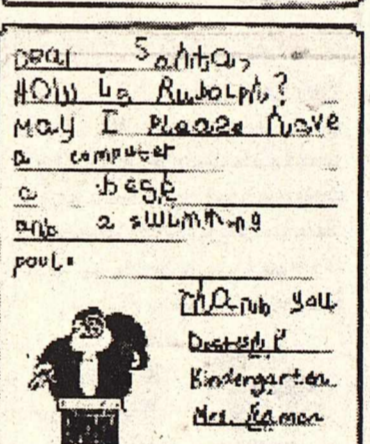 Dear Santa,
How is Rudolph?
May I Please have
a computer
a desk
and a swimming
pool.
Thank you
Kindergarten
Mrs.